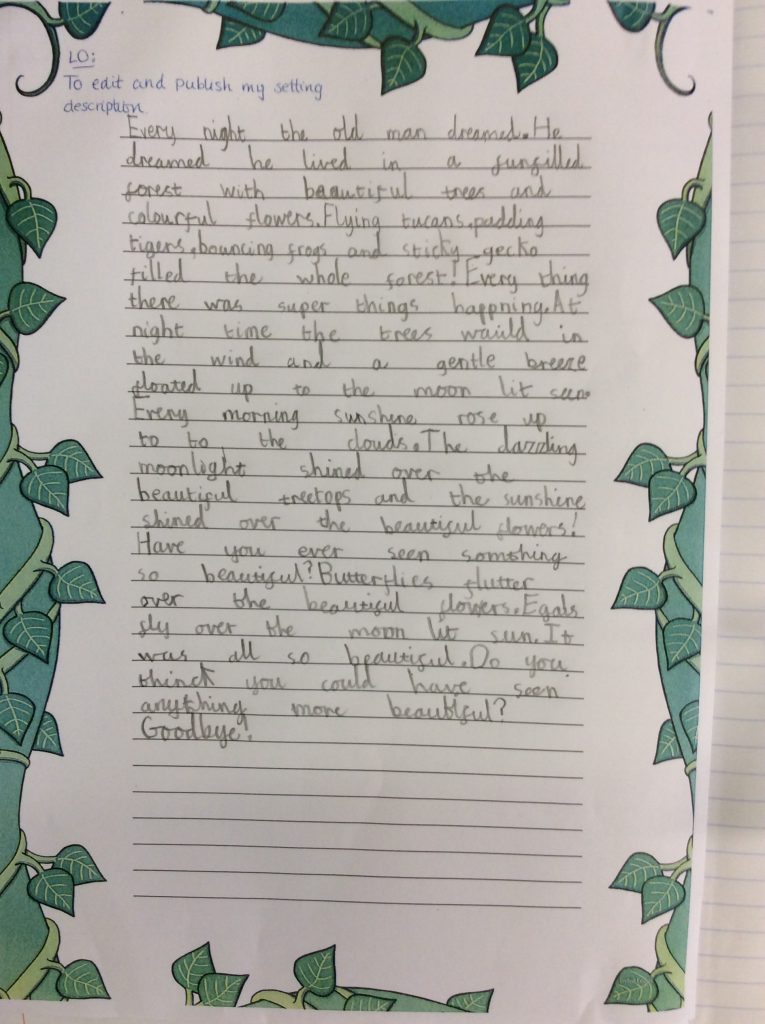 LO:
To edit and publish my setting
description
Every night the old man dreamed. He
dreamed he lived in a funfilled
forest with beautiful trees and
colourful flowers. Flying tucans, padding
tigers, bouncing frogs and sticky gecko
filled the whole forest! Every thing
there was super things happning. At
night time the trees in
the wind and a gentle breeze
floated up to the moon lit
Every morning sunshine rose up
to to the clouds. The dazzling
moonlight shined over the
beautiful treetops and the sunshine
shined over the beautiful flowers!
Have you ever seen somthing
so beautiful? Butterflies flutter
over the beautiful flowers. Egals
fly over the moon lit sun. It
was all so beautiful. Do you
thinck you could have seen
anything more beautiful?
Goodbye!